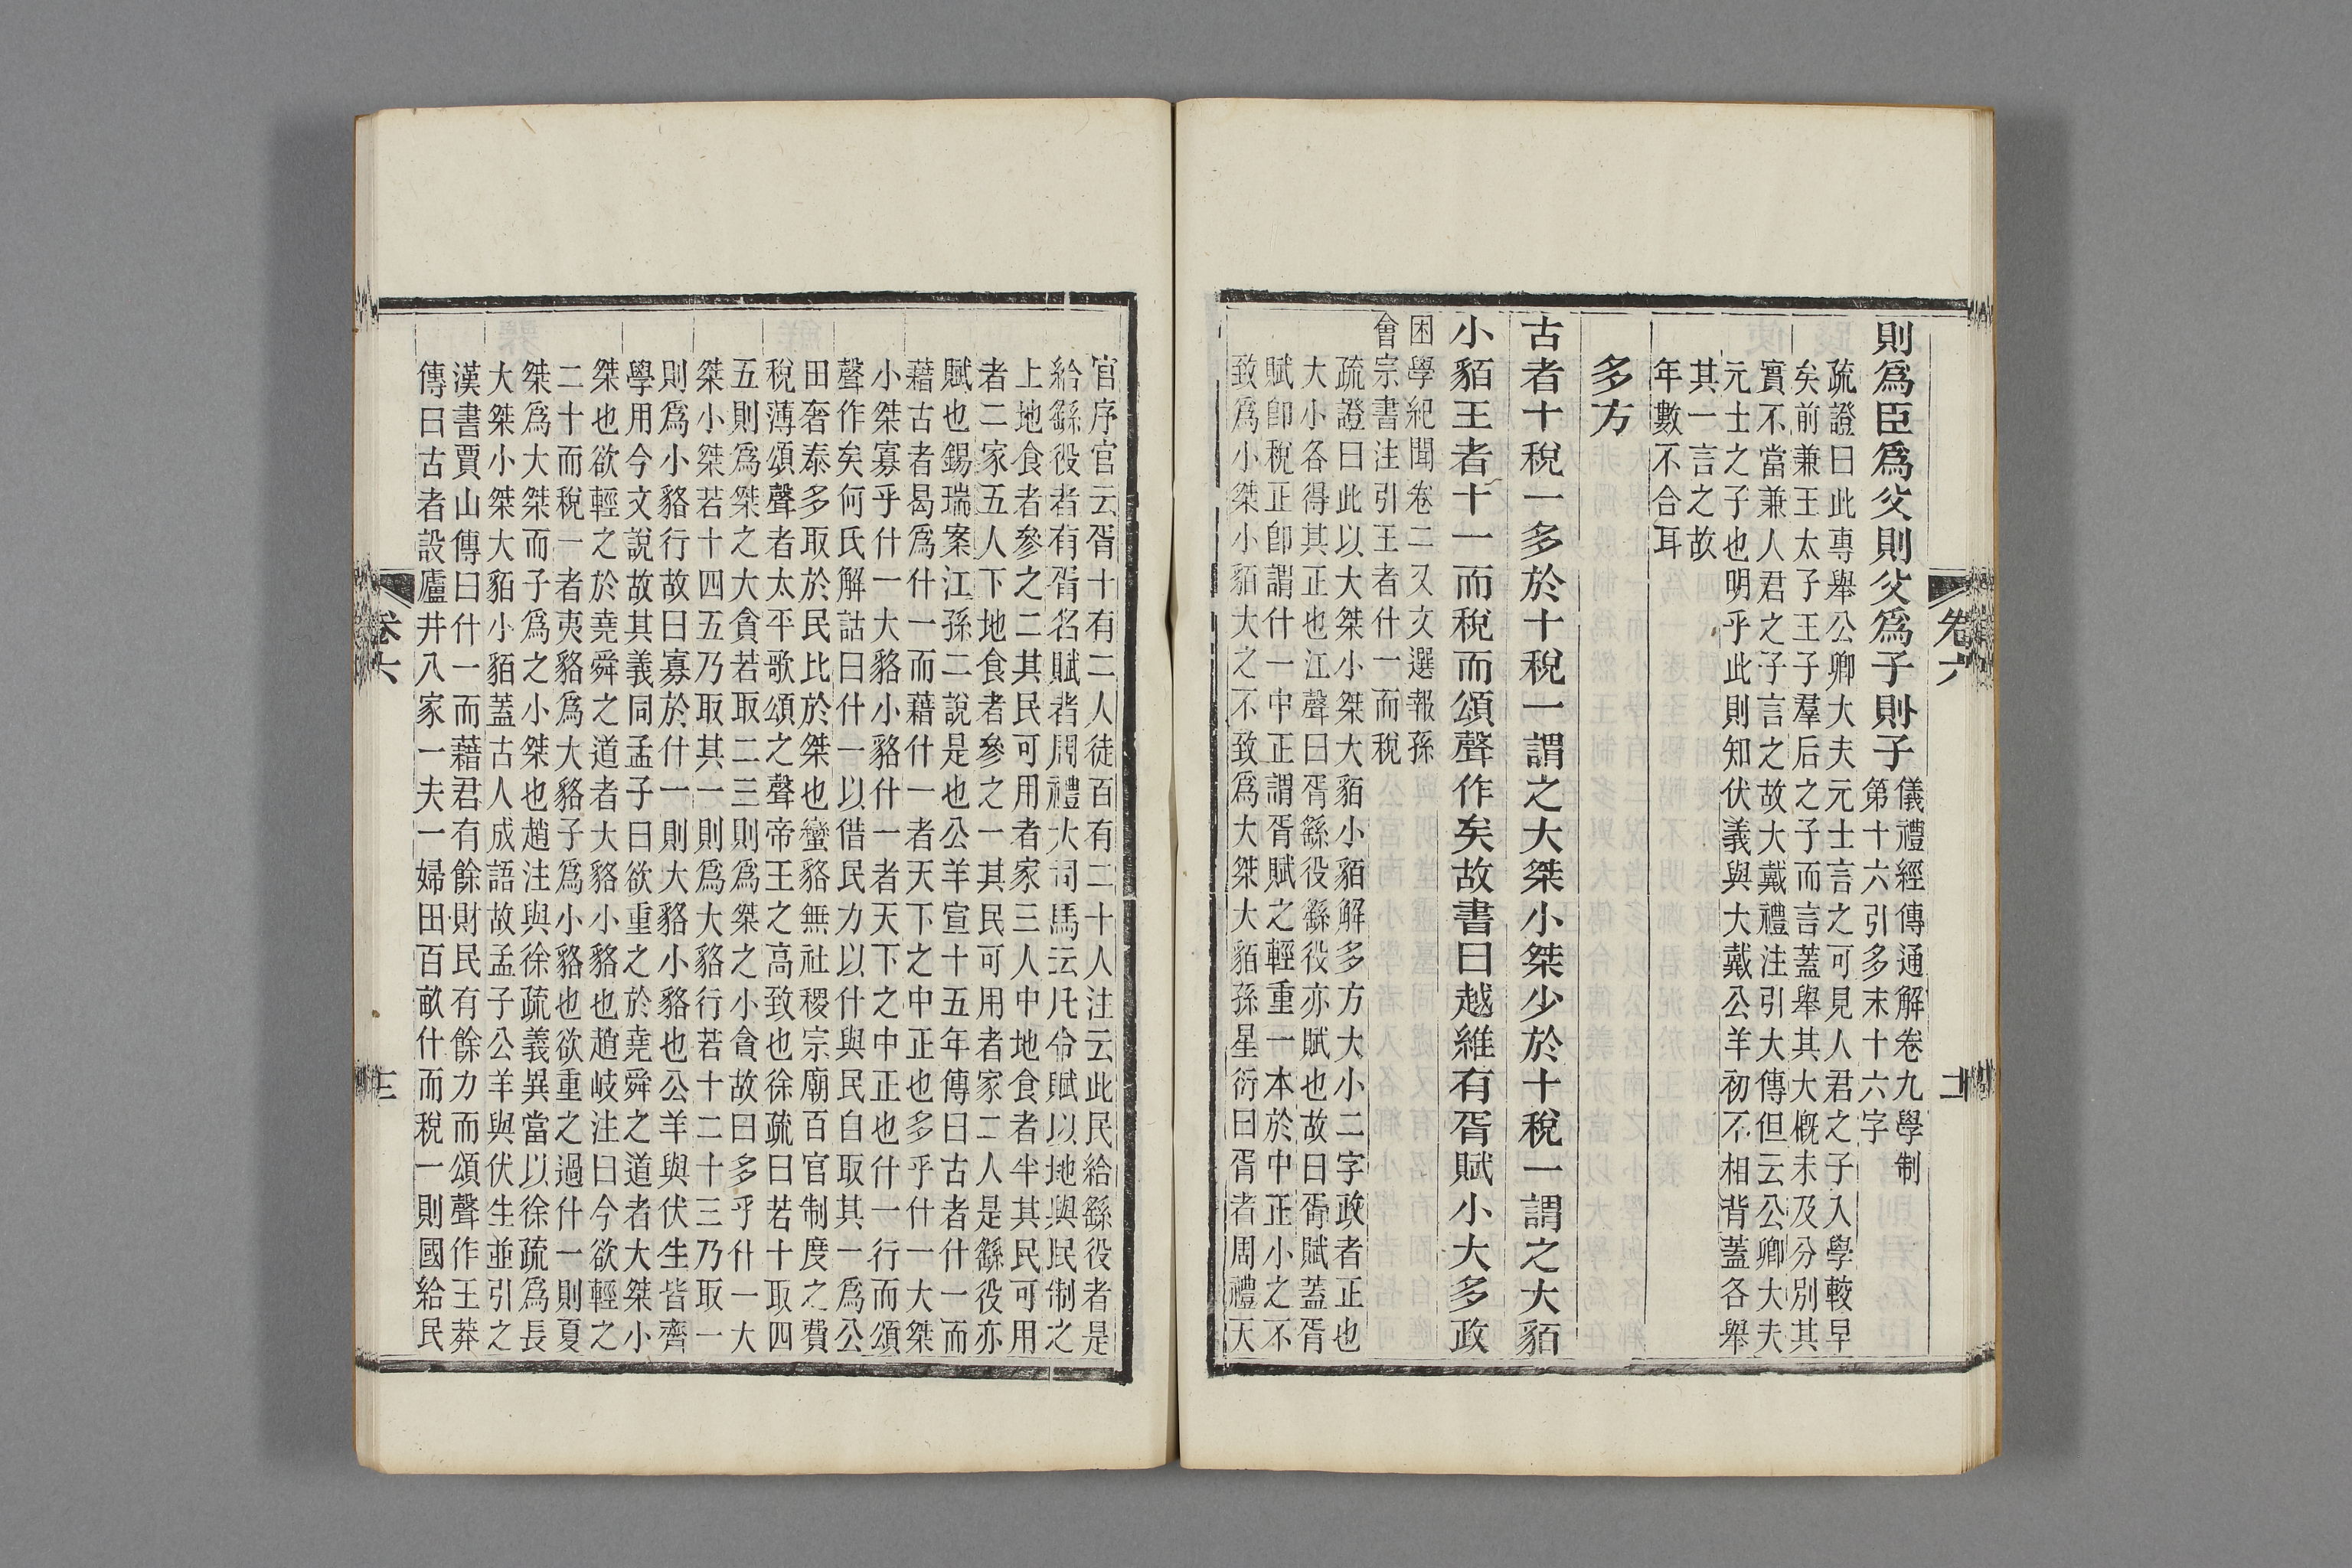 則爲臣爲父則父爲子則子
儀禮經傳通解卷九學制
第十六引多末十六字
疏證曰此專舉公卿大夫元士言之可見人君之子入學較早
矣前兼王太子王子羣后之子而言蓋舉其大概未及分別其
實不當兼人君之子言之故大戴禮注引大傳但云公卿大夫
元士之子也明乎此則知伏義與大戴公羊初不相背蓋各舉
其一言之故
年數不合耳
多方
古者十稅一多於十稅一謂之大桀小桀少於十稅一謂之大貊
小貊王者十一而稅而頌聲作矣故書曰越維有胥賦小大多政
困學紀聞卷二又文選報孫
會宗書注引王者什一而稅
疏證曰此以大桀小桀大貊小貊解多方大小二字政者正也
大小各得其正也江聲曰胥繇役繇役亦賦也故曰胥賦蓋胥
賦卽稅正卽謂什一中正謂胥賦之輕重一本於中正小之不
致爲小桀小貊大之不致爲大桀大貊孫星衍曰胥者周禮天
卷六
官序官云胥十有二人徒百有二十人注云此民給繇役者是
給繇役者有胥名賦者周禮大司馬云凡令賦以地與民制之
上地食者參之二其民可用者家三人中地食者半其民可用
者二家五人下地食者參之一其民可用者家二人是繇役亦
賦也錫瑞案江孫二說是也公羊宣十五年傳曰古者什一而
藉古者曷爲什一而藉什一者天下之中正也多乎什一大桀
小桀寡乎什一大貉小貉什一者天下之中正也什一行而頌
聲作矣何氏解詁曰什一以借民力以什與民自取其一爲公
田奢泰多取於民比於桀也蠻貉無社稷宗廟百官制度之費
稅薄頌聲者太平歌頌之聲帝王之高致也徐疏曰若十取四
五則爲桀之大貪若取二三則爲桀之小貪故曰多乎什一大
桀小桀若十四五乃取其一則爲大貉行若十二十三乃取一
則爲小貉行故曰寡於什一則大貉小貉也公羊與伏生皆齊
學用今文說故其義同孟子曰欲重之於堯舜之道者大桀小
桀也欲輕之於堯舜之道者大貉小貉也趙岐注曰今欲輕之
二十而稅一者夷貉爲大貉子爲小貉也欲重之過什一則夏
桀爲大桀而子爲之小桀也趙注與徐疏義異當以徐疏爲長
大桀小桀大貊小貊蓋古人成語故孟子公羊與伏生並引之
漢書賈山傳曰什一而藉君有餘財民有餘力而頌聲作王莽
傳曰古者設廬井八家一夫一婦田百畝什而稅一則國給民
卷六